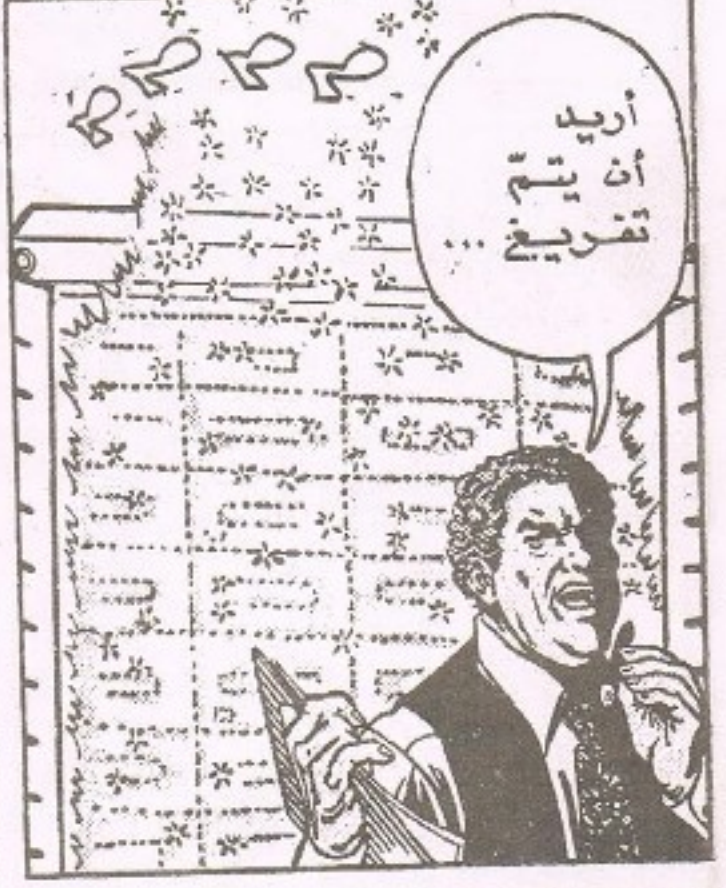 أريد
أن يتمّ
تفريغ ...